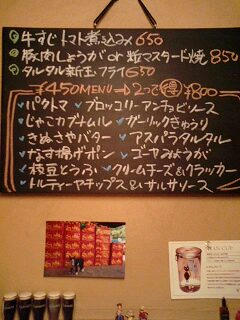 牛すじトマト煮込み 650
豚肉しょうが or 粒マスタード焼 850
タルタル新玉フライ 650
¥450MENU → 2つで 得 ¥800
✓パクトマ ✓ブロッコリーアンチョビソース
✓じゃこカブナムル ✓ガーリックきゅうり
✓きぬさやバター ✓アスパラタルタル
✓なす揚げポン ✓ゴーヤみょうが
✓枝豆とうふ ✓クリームチーズ&クラッカー
✓トルティーヤチップス&サルサソース